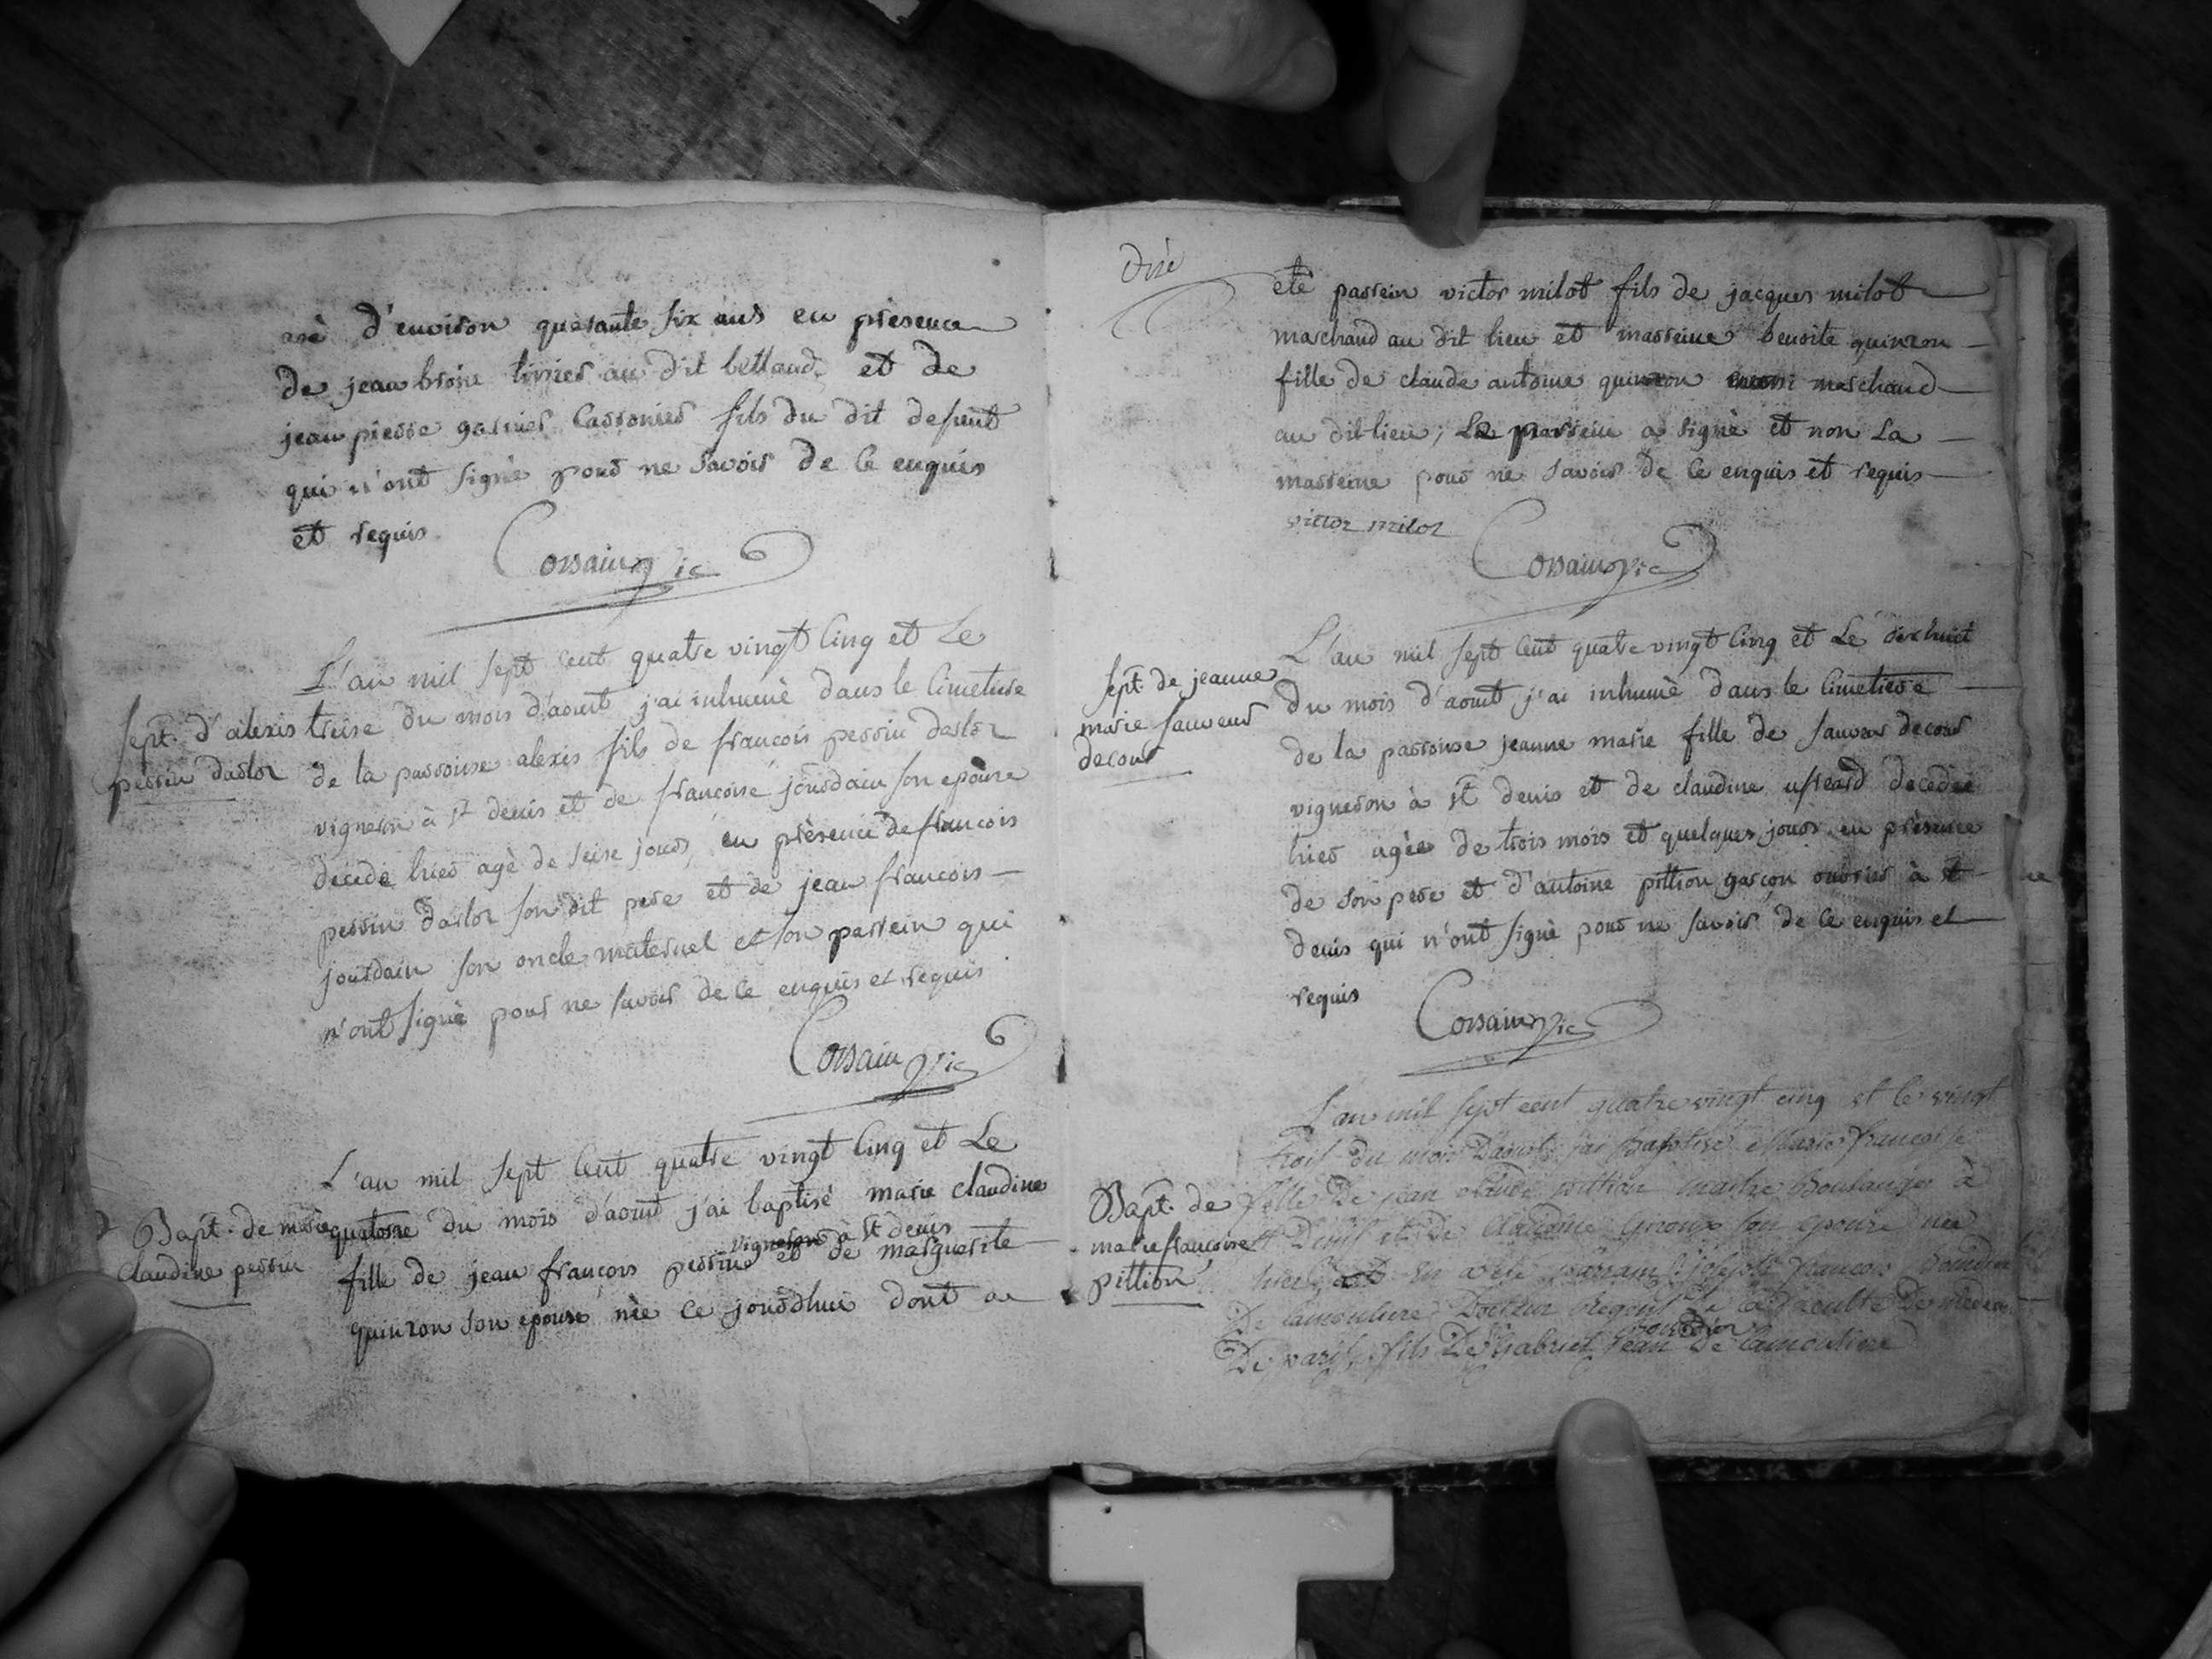 agé d'environ quarante six ans en présence
de jean broïe tissier au dit bettand et de
jean pierre garnier cassonier fils du dit defunt
qui n'ont signé pour ne savoir de ce enquis
et requis
Corsain vic
L'an mil sept cent quatre vingt cinq et Le
sept. d'alexis
perrin darloz
treise du mois d'aout j'ai inhumé dans le cimetiere
de la parroisse alexis fils de francois perrin darloz
vigneron à st denis et de francoise jourdain son epouse
decedé hier agé de seise jours, en présence de francois
perrin darloz son dit pere et de jean francois
jourdain son oncle maternel et son parrein qui
n'ont signé pour ne savoir de ce enquis et requis
Corsain vic
L'an mil sept cent quatre vingt cinq et Le
Bapt. de marie
claudine perrin
quatorse du mois d'aout j'ai baptisé marie claudine
vigneron à st denis
fille de jean francois perrin et de marguerite
quinzon son epouse, née ce jourd'hui dont a
été parrein victor milot fils de jacques milot
marchand au dit lieu et marreine benoite quinzon
fille de claude antoine quinzon marchand
au dit lieu; Le parrein a signé et non La
marreine pour ne savoir de ce enquis et requis
victor miloz
Corsain vic
L'an mil sept cent quatre vingt cinq et Le dix huit
sept. de jeanne
marie sauveur
decour
du mois d'aout j'ai inhumé dans le cimetiere
de la parroisse jeanne marie fille de sauveur decour
vigneron à st denis et de claudine decedée
hier agée de trois mois et quelques jours en présence
de son pere et d'antoine pittion garçon ouvrier à st
denis qui n'ont signé pour ne savoir de ce enquis et
requis
Corsain vic
L'an mil sept cent quatre vingt cinq et le vingt
trois du mois D'aoust j'ai baptisé Marie francoise
Bapt. de
marie francoise
pittion
fille De jean claude pittion maitre Boulanger à
st Denis et de Claudine son epouse née
hier en a été parrain joseph francois
De lamouliere Docteur Regent De la faculté De medecine
De paris, fils De Gabriel jean De lamouliere